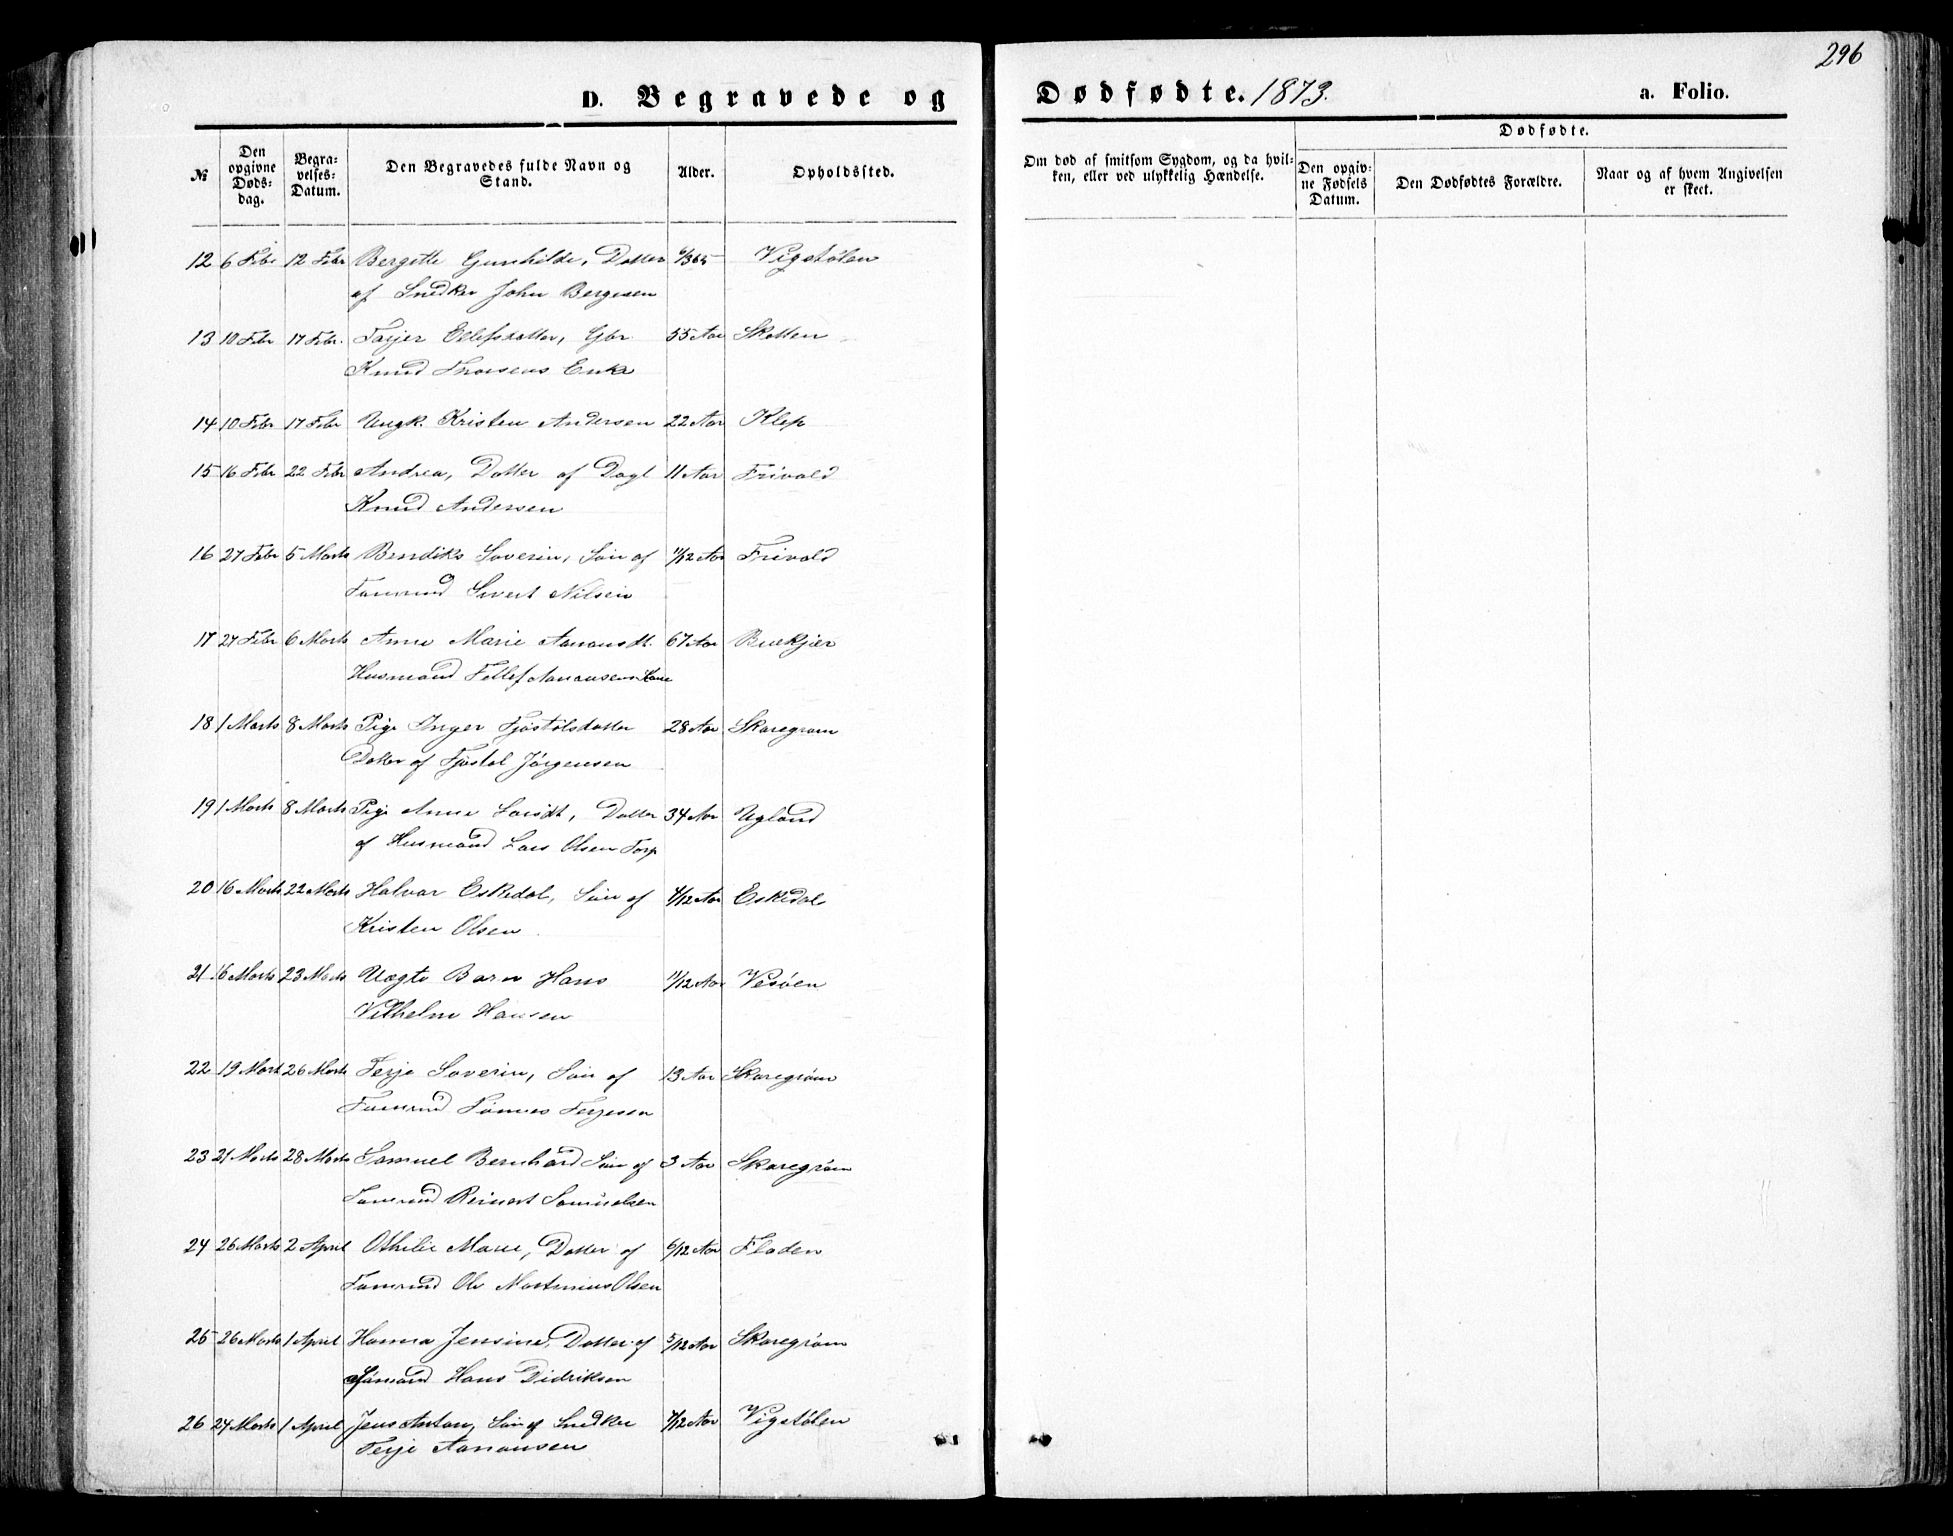 296
D. Begravede og Dødfødte. 1873. a. Folio.
№
Den opgivne Døds-dag.
Begra-velses-Datum.
Den Begravedes fulde Navn og Stand.
Alder.
Opholdssted.
Om død af smitsom Sygdom, og da hvil-
ken, eller ved ulykkelig Hændelse.
Dødfødte.
Den opgiv-
ne Fødsels
Datum.
Den Dødfødtes Forældre.
Naar og af hvem Angivelsen
er skeet.
12 6 Febr 12 Febr Bergitte Gunhilde, Datter 6/365 Vigstølen
af Snedker John Bergesen
13 10 Febr 17 Febr. Tarjer Ellefsdatter, Gbr 55 Aar Skotten
Knud Thorsens Enke
14 10 Febr 17 Febr Ungk. Kristen Andersen 22 Aar Klep
15 16 Febr 22 Febr Andrea, Datter af Dagl 11 Aar Frivold
Knud Andersen
16 27 Febr 5 Marts Bendiks Severin, Søn af 11/12 Aar Frivold
Tømmd Sivert Nilsen
17 27 Febr 6 Marts Anne Marie Aanonsdt. 67 Aar Buekjær
Husmand Tellef Aanonsens Kone
18 1 Marts 8 Marts Pige Inger Fjøstølsdatter 28 Aar Skaregrøm
Datter af Fjøstøl Jørgensen
19 1 Marts 8 Marts Pige Anne Larsdt, Datter 34 Aar Ugland
af Husmand Lars Olsen Torp
20 16 Marts 22 Marts Halvar Eskedal, Søn af 4/12 Aar Eskedal
Kristen Olsen
21 16 Marts 23 Marts Uægte Barn Hans 11/12 Aar Vesøen
Vilhelm Hansen
22 19 Marts 26 Marts Terje Severin, Søn af 13 Aar Skaregrøm
Tømmd Tønnes Terjesen
23 21 Marts 28 Marts Samuel Bernhard Søn af 3 Aar Skaregrøm
Tømmd Reinert Samuelsen
24 26 Marts 2 April Othilie Marie, Datter af 6/12 Aar Fladen
Tømmd Ole Martinius Olsen
25 26 Marts 1 April Hanna Jensine, Datter af 5/12 Aar Skaregrøm
Sømand Hans Didriksen
26 24 Marts 1 April Jens Anton, Søn af Snedker 7/12 Aar Vigstølen
Terje Aanonsen